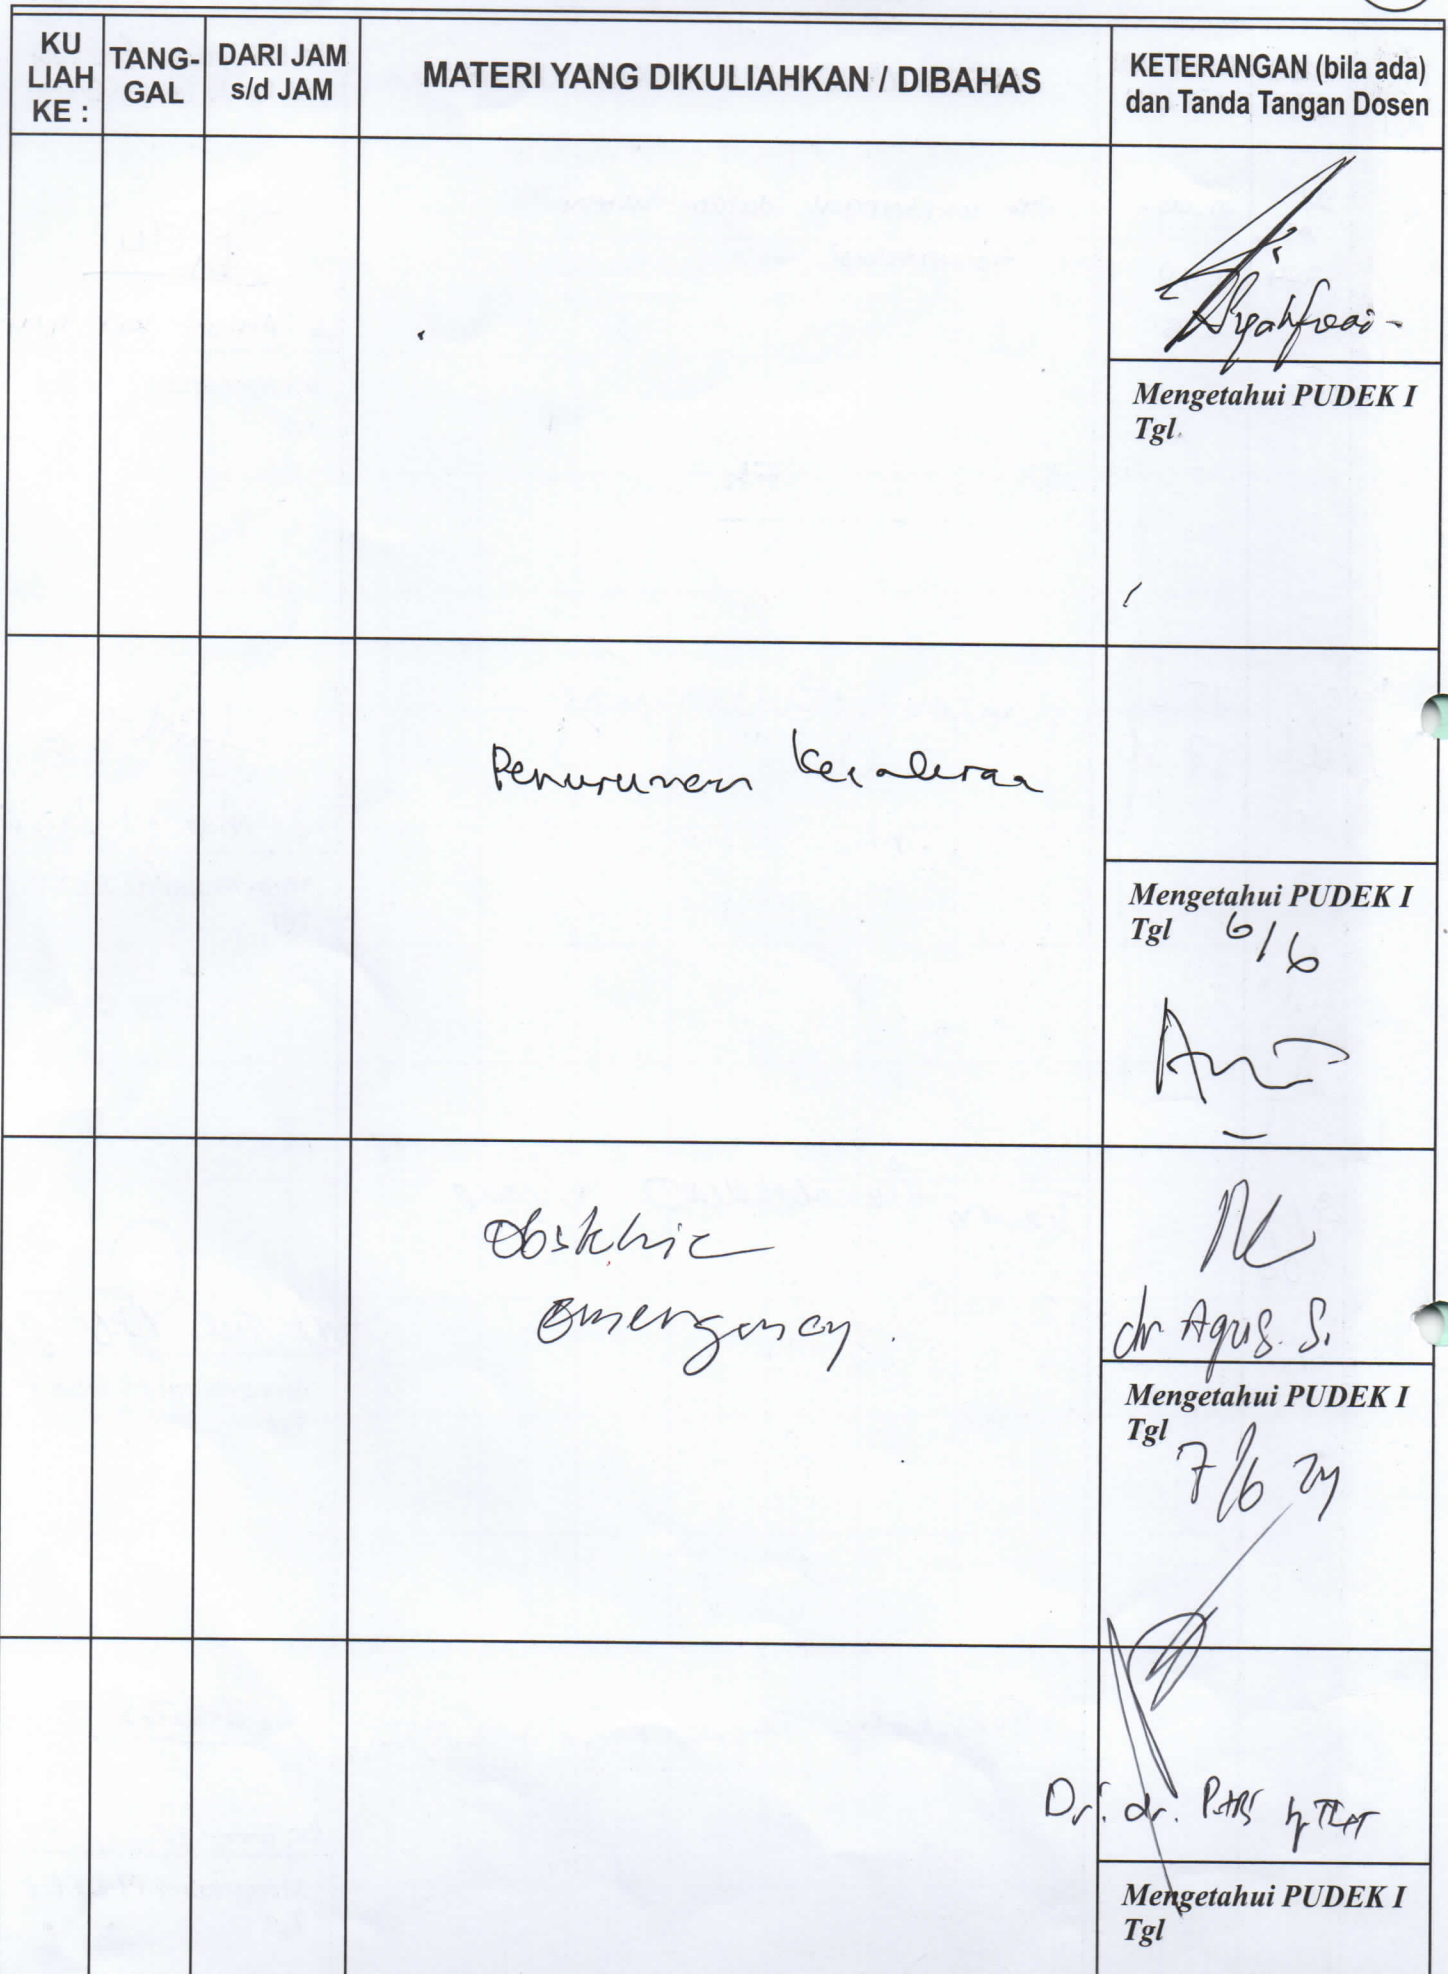 KU LIAH KE :
TANG-GAL
DARI JAM s/d JAM
MATERI YANG DIKULIAHKAN / DIBAHAS
KETERANGAN (bila ada) dan Tanda Tangan Dosen
Mengetahui PUDEK I
Tgl.
Penurunan
Mengetahui PUDEK I
Tgl 6/6
Obstetric
emergency.
dr Agus. S.
Mengetahui PUDEK I
Tgl 7/6 24
Dr. dr.
Mengetahui PUDEK I
Tgl